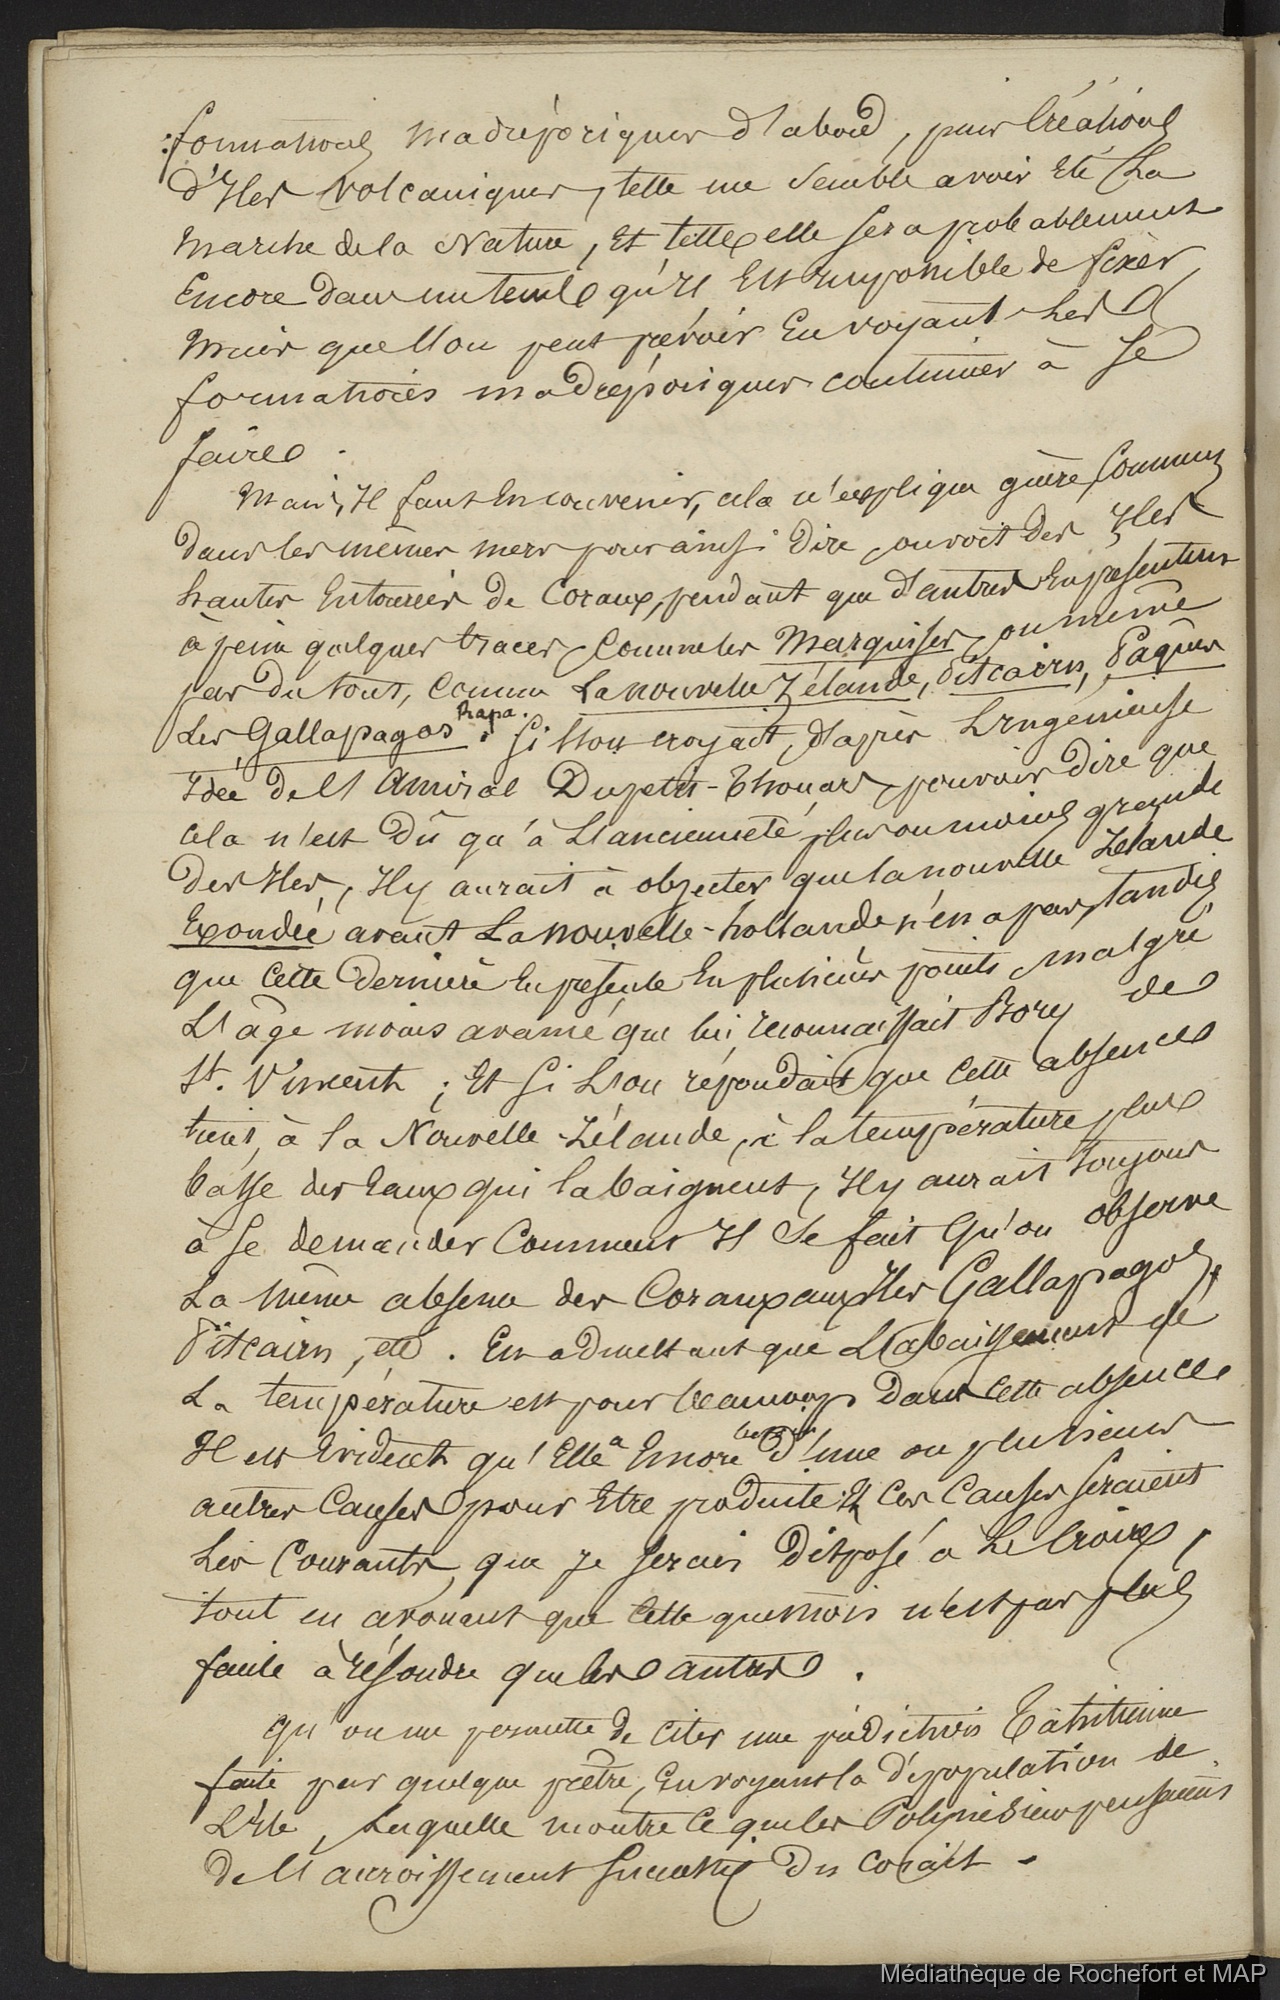 : formations madréporiques d'abord, puis Créations
d'Iles volcaniques, telle me semble avoir Eté La
marche de la Nature, Et telle elle sera probablement
Encore dans un tems qu'il Est Impossible de fixer,
mais que l'on peut prévoir En voyant les
formations madréporiques continuer à se
faire.
Mais, Il faut En convenir, cela n'explique guère Comment
dans les mêmes mers pour ainsi dire, on voit des Iles
hautes Entourées de Coraux, pendant que d'autres En présentent
à peine quelques traces, Comme les Marquises, ou même
pas du tout, Comme La nouvelle Zélande, Pitcairn, Pâques
Les Gallapagos, Rapa. Si l'on croyait, d'après L'Ingénieuse
Idée de l'Amiral Dupetit-Thouars, pouvoir dire que
cela n'est dû qu'à L'ancienneté plus ou moins grande
des Iles, Il y aurait à objecter que la nouvelle Zélande
Exondée avant La Nouvelle-hollande n'en a pas, tandis
que Cette Dernière En présente En plusieurs points malgré
L'âge moins avancé que lui reconnaissait Bory de
St. Vincent ; Et si L'on répondait que Cette absence
tient, à la Nouvelle-Zélande, à la température plus
basse des Eaux qui la baignent, Il y aurait toujours
à se demander Comment Il se fait qu'on observe
La même absence des Coraux aux Iles Gallapagos,
Pitcairn, etc. En admettant que L'abaissement de
La température est pour beaucoup Dans Cette absence
Il est Evident qu'Elle a Encore besoin d'une ou plusieurs
autres Causes pour Etre produite Et Ces Causes seraient
Les Courants, que je serais disposé à Le Croire,
tout en avouant que Cette question n'est pas plus
facile à résoudre que les autres.
Qu'on me permette de Citer une prédiction Tahitienne
faite par quelque prêtre, En voyant la dépopulation de
L'Ile, Laquelle montre ce que les Polynésiens pensaient
de l'accroissement successif du Corail.
Médiathèque de Rochefort et MAP